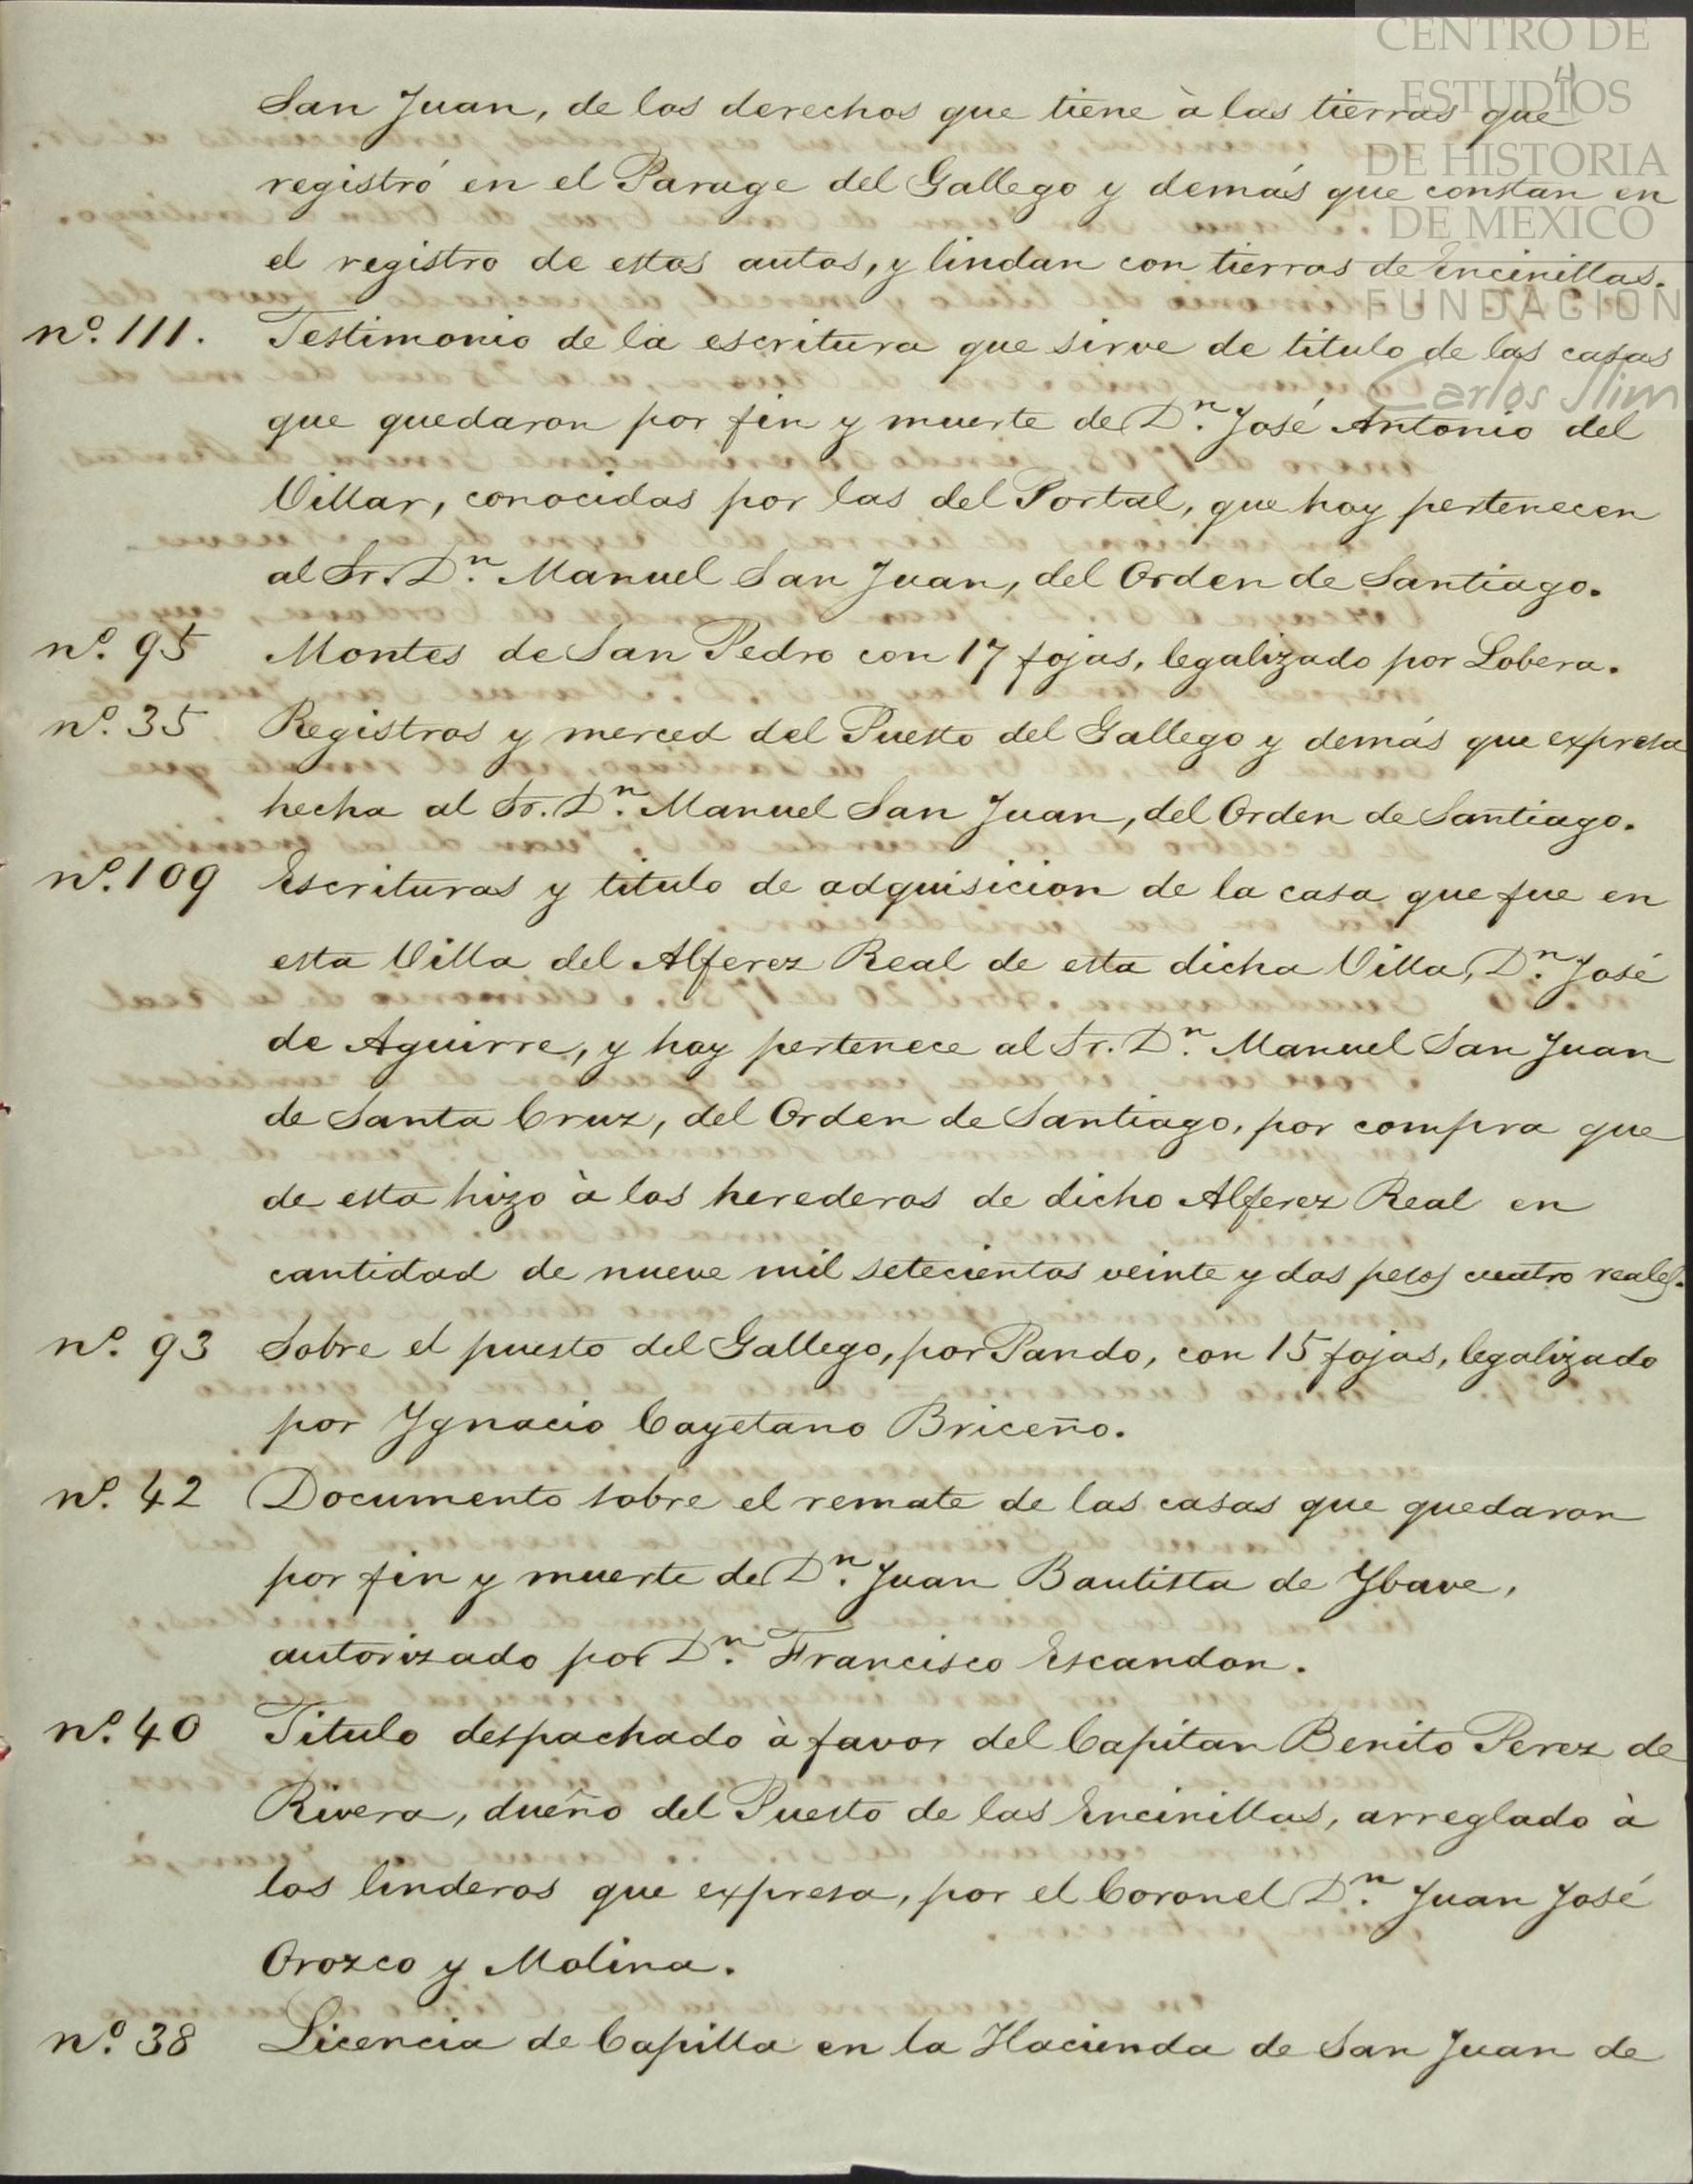 CENTRO DE
ESTUDIOS
DE HISTORIA
DE MEXICO
FUNDACION
Carlos Slim
4
San Juan, de los derechos que tiene à las tierras que
registró en el Parage del Gallego y demás que constan en
el registro de estos autos, y lindan con tierras de Encinillas.
nº. 111. Testimonio de la escritura que sirve de titulo de las casas
que quedaron por fin y muerte de Dn. José Antonio del
Villar, conocidas por las del Portal, que hoy pertenecen
al Sr. Dn. Manuel San Juan, del Orden de Santiago.
nº. 95 Montes de San Pedro con 17 fojas, legalizado por Lobera.
nº. 35 Registros y merced del Puesto del Gallego y demás que expresa
hecha al Sr. Dn. Manuel San Juan, del Orden de Santiago.
nº. 109 Escrituras y titulo de adquisicion de la casa que fue en
esta Villa del Alferez Real de esta dicha Villa, Dn. José
de Aguirre, y hoy pertenece al Sr. Dn. Manuel San Juan
de Santa Cruz, del Orden de Santiago, por compra que
de esta hizo à los herederos de dicho Alferez Real en
cantidad de nueve mil setecientos veinte y dos pesos cuatro reales.
nº. 93 Sobre el puesto del Gallego, por Pando, con 15 fojas, legalizado
por Ygnacio Cayetano Briceño.
nº. 42 Documento sobre el remate de las casas que quedaron
por fin y muerte de Dn. Juan Bautista de Ybave,
autorizado por Dn. Francisco Escandon.
nº. 40 Titulo despachado à favor del Capitan Benito Perez de
Rivera, dueño del Puesto de las Encinillas, arreglado à
los linderos que expresa, por el Coronel Dn. Juan José
Orozco y Molina.
nº. 38 Licencia de Capilla en la Hacienda de San Juan de